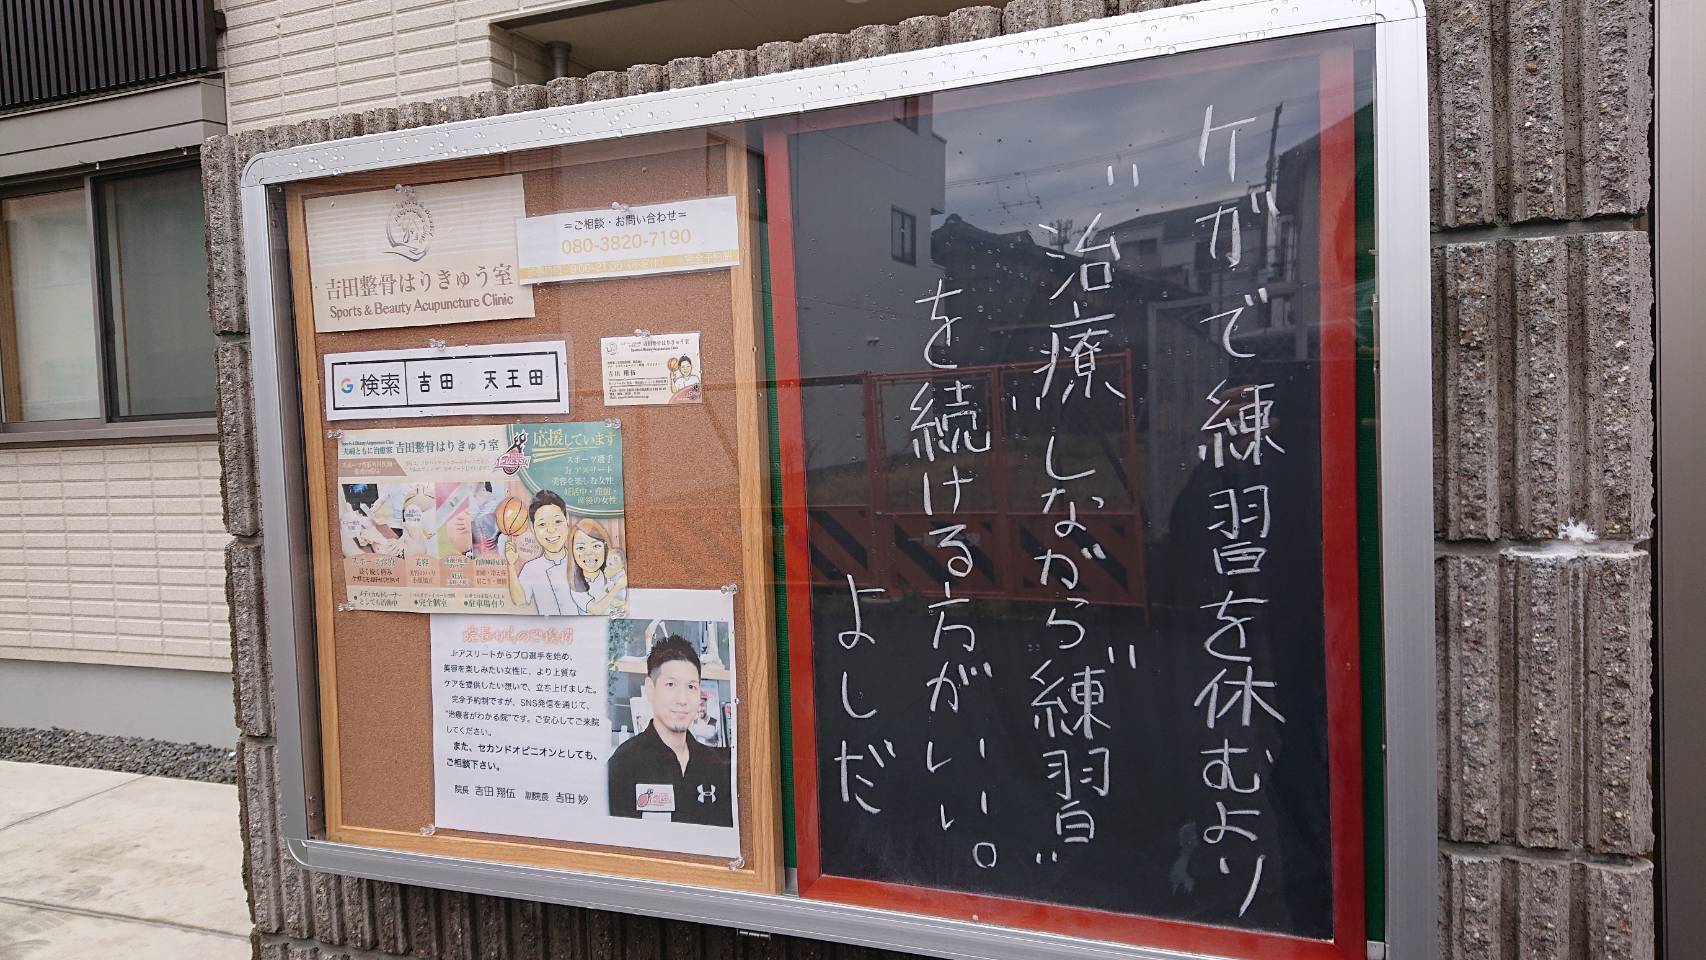 吉田整骨はりきゅう室
Sports & Beauty Acupuncture Clinic
=ご相談・お問い合わせ=
080-3820-7190
検索 吉田 天王田
吉田整骨はりきゅう室
吉田 翔伍
夫婦ともに治療家 吉田整骨はりきゅう室
応援しています
スポーツ選手
Jr.アスリート
美容を楽しむ女性
妊活中・産前・
産後の女性
美容
・メディカルトレーナー
としても活動中
●完全個室
●駐車場有り
院長からのご挨拶
Jrアスリートからプロ選手を始め、
美容を楽しみたい女性に、より上質な
ケアを提供したい想いで、立ち上げました。
完全予約制ですが、SNS発信を通じて、
"治療者がわかる院"です。ご安心してご来院
してください。
また、セカンドオピニオンとしても、
ご相談下さい。
院長 吉田 翔伍 副院長 吉田 妙
ケガで練習を休むより
"治療"しながら"練習"
を続ける方がいい。
よしだ